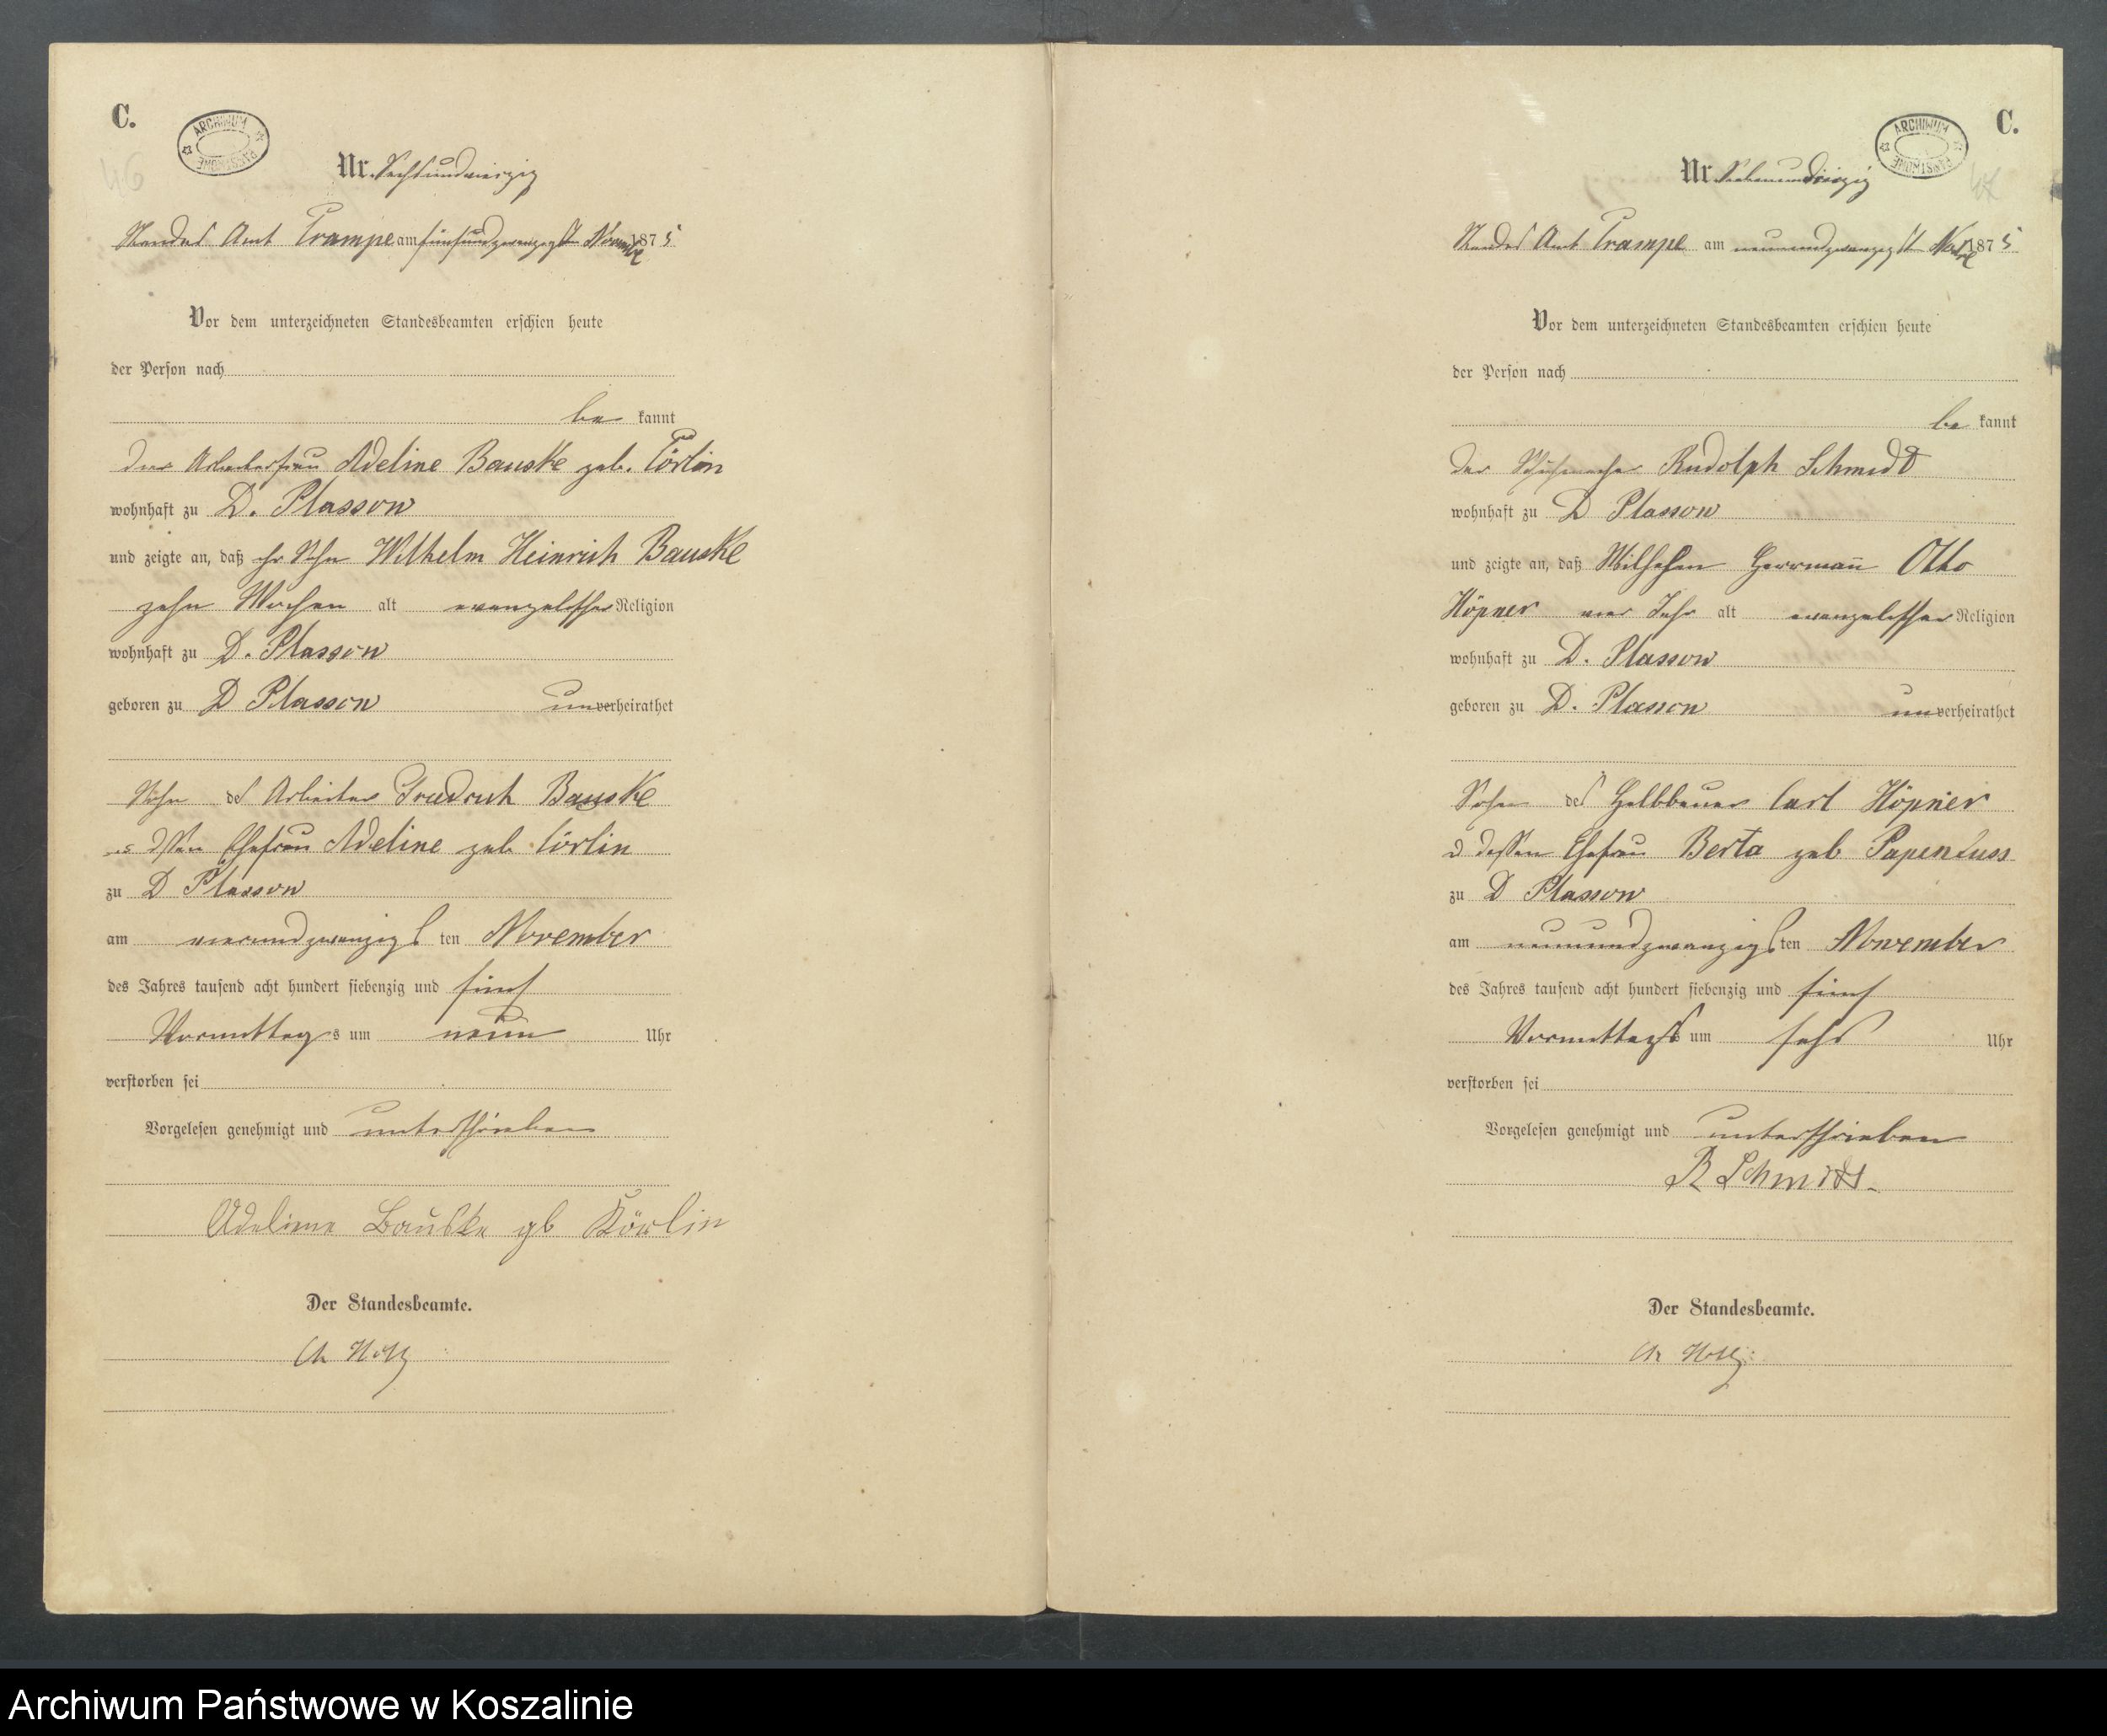 C.
ARCHIWUM PAŃSTWOWE
46
Nr. Sechsundvierzig
Standes Amt Trampe am fünfundzwanzigst November 1875
Vor dem unterzeichneten Standesbeamten erschien heute
der Person nach
be kannt
die Arbeiterfrau Adeline Bauske geb. Cörlin
wohnhaft zu D. Plassow
und zeigte an, daß ihr Sohn Wilhelm Heinrich Bauske
zehn Wochen alt evangelischer Religion
wohnhaft zu D. Plassow
geboren zu D Plassow unverheirathet
Sohn des Arbeiter Friedrich Bauske
u dssen Ehefrau Adeline geb Cörlin
zu D Plassow
am vierundzwanzigsten November
des Jahres tausend acht hundert siebenzig und fünf
Vormittags um neun Uhr
verstorben sei
Vorgelesen genehmigt und unterschrieben
Adeline Bauske gb Körlin
Der Standesbeamte.
C.
ARCHIWUM PAŃSTWOWE
47
Nr. Siebenundvierzig
Standes Amt Trampe am neunundzwanzigst Novbr 1875
Vor dem unterzeichneten Standesbeamten erschien heute
der Person nach
be kannt
der Schuhmacher Rudolph Schmidt
wohnhaft zu D Plassow
und zeigte an, daß Wilhelm Herrmañ Otto
Höpner vier Jahr alt evangelischer Religion
wohnhaft zu D. Plassow
geboren zu D. Plassow unverheirathet
Sohn des Halbbauer Carl Höpner
u dessen Ehefrau Berta geb Papenfuss
zu D Plassow
am neunundzwanzigsten November
des Jahres tausend acht hundert siebenzig und fünf
Vormittags um sechs Uhr
verstorben sei
Vorgelesen genehmigt und unterschrieben
R Schmidt
Der Standesbeamte.
Archiwum Państwowe w Koszalinie